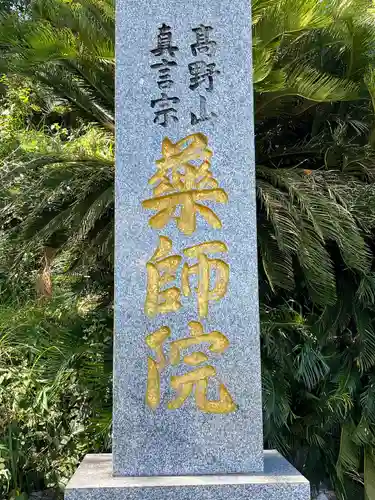 髙野山
真言宗
薬師院